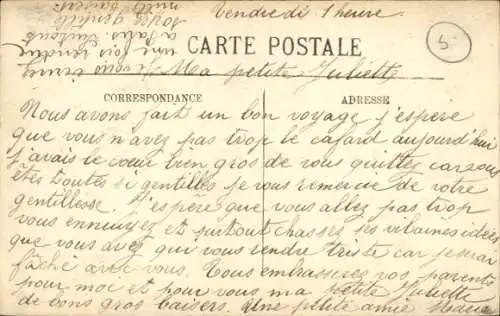 Vendredi 1 heure
5
CARTE POSTALE
Ma petite Juliette
CORRESPONDANCE
ADRESSE
Nous avons fait un bon voyage j'espère
que vous n'avez pas trop le cafard aujourd'hui
j'avais le cœur bien gros de vous quitter car vous
êtes toutes si gentilles je vous remercie de votre
gentillesse. J'espère que vous allez pas trop
vous ennuyez et surtout chassez ses vilaines idées
que vous avez qui vous rendre triste car je serai
fâché avec vous. Vous embrasserez vos parents
pour moi et pour vous ma petite Juliette
de bons gros baisers. Une petite amie Maria